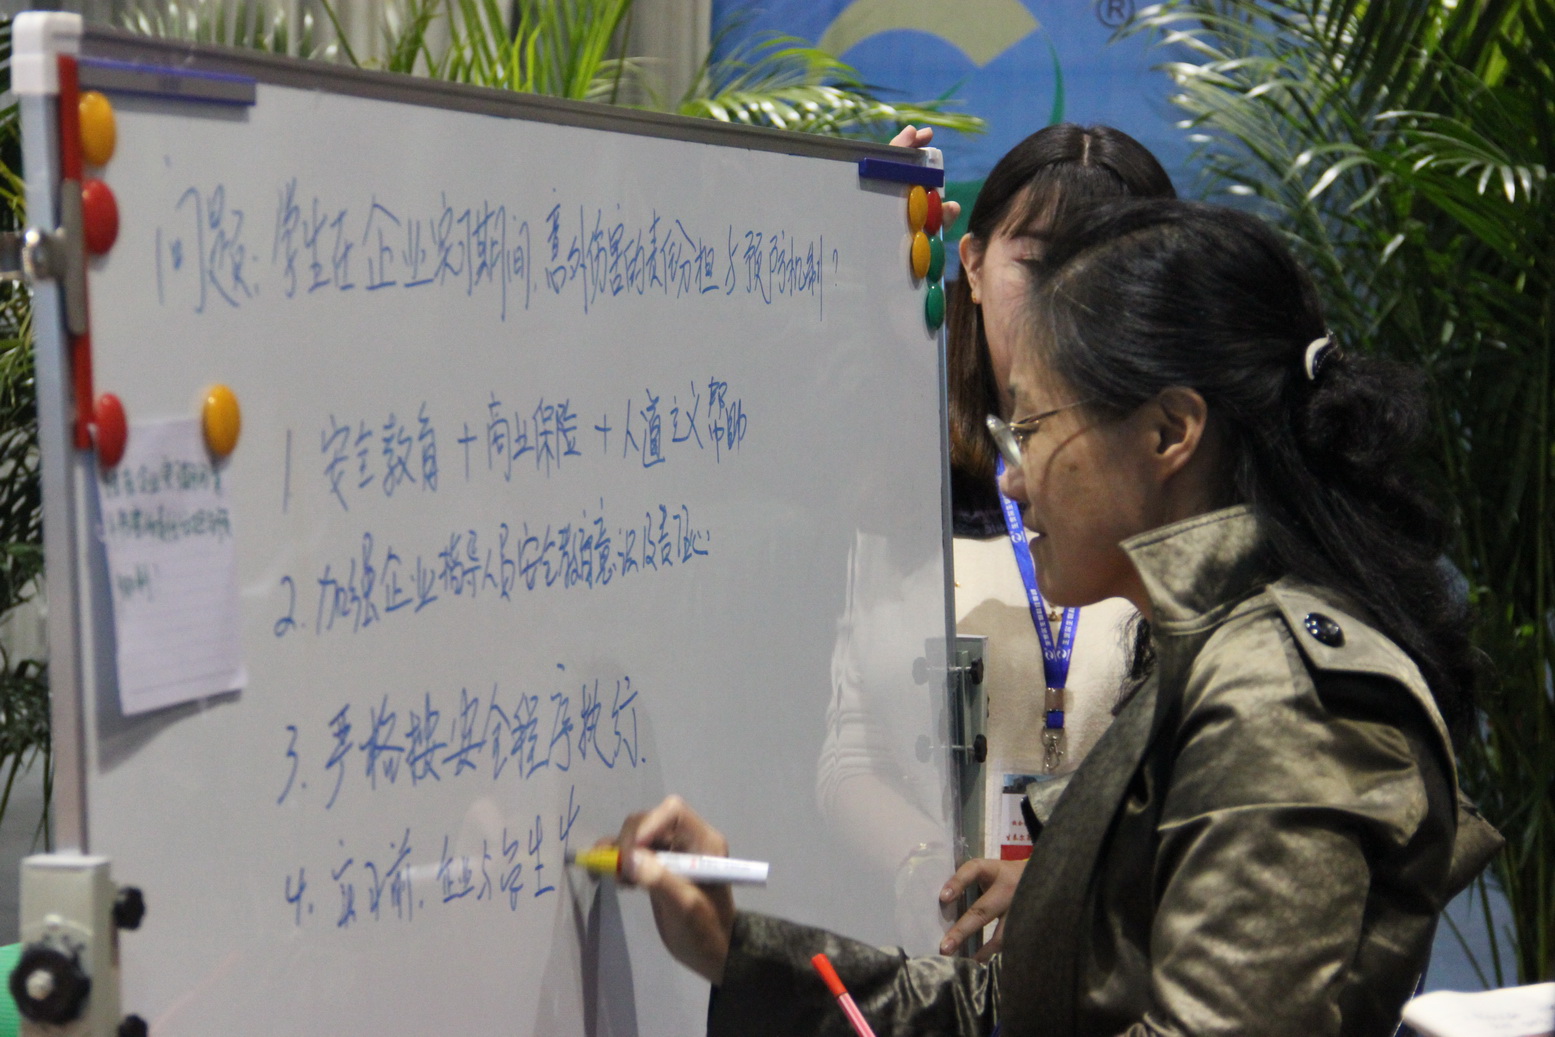 问题:学生在企业实习期间,意外伤害的责任分担与预防机制?
1 安全教育+商业保险+人道主义帮助
2. 加强企业指导人员安全教育意识及责任心
3. 严格按安全程序执行.
4. 实习前.企业与学生
®